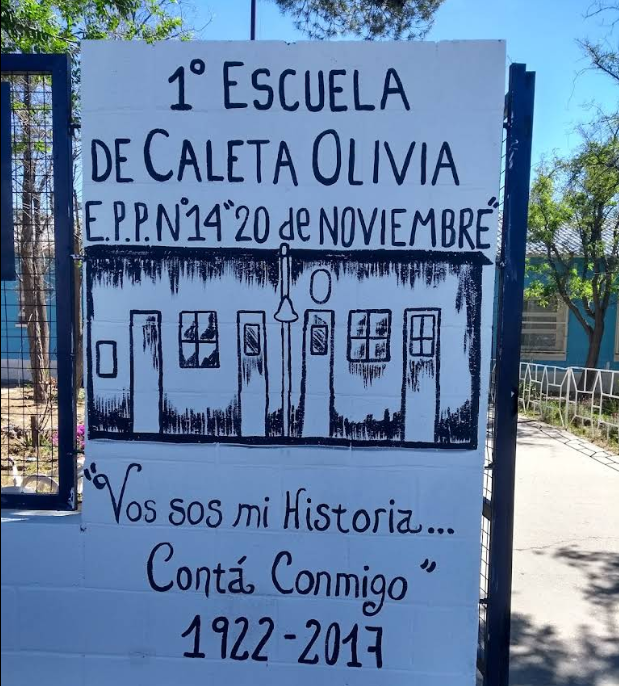 1° ESCUELA
DE CALETA OLIVIA
E.P.P. N°14 "20 de NOVIEMBRE"
"Vos sos mi Historia...
Contá Conmigo"
1922-2017